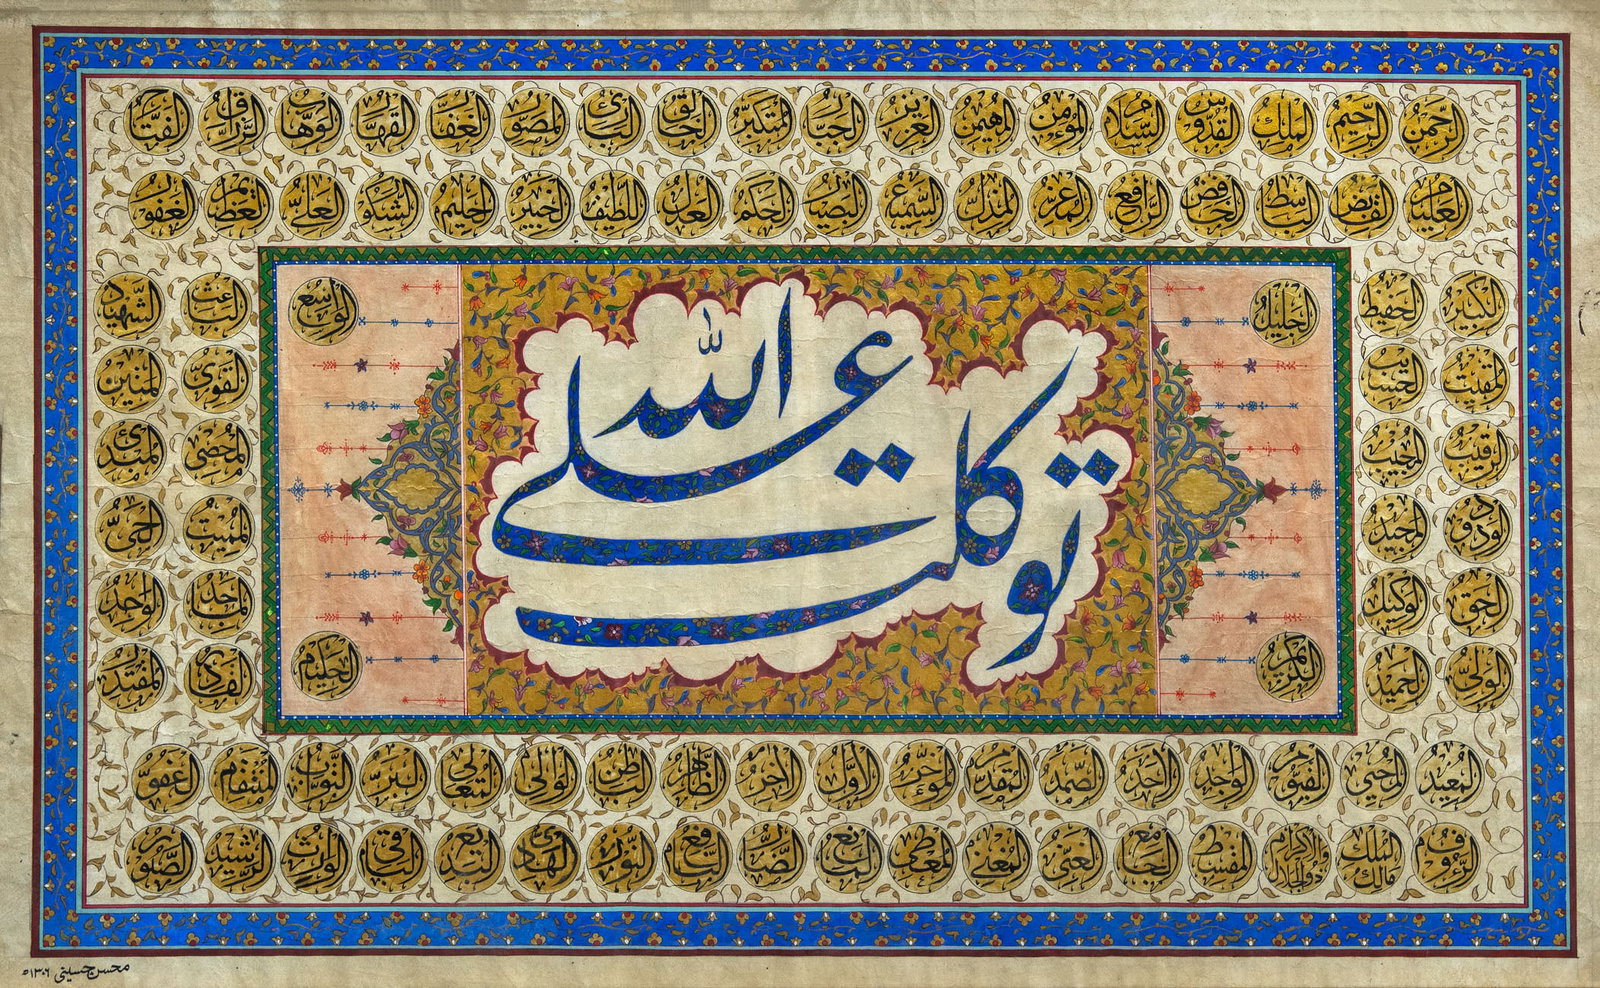 الرحمن الرحيم الملك القدوس السلام المؤمن المهيمن العزيز الجبار المتكبر الخالق البارئ المصور الغفار القهار الوهاب الرزاق الفتاح
العليم القابض الباسط الخافض الرافع المعز المذل السميع البصير الحكم العدل اللطيف الخبير الحليم الشكور العلي العظيم الغفور
الكبير الحفيظ الجليل الواسع الباعث الشهيد
المقيت الحسيب القوي المتين
الرقيب المجيب المحصي المبدئ
توكلت علی الله
الودود المجيد المميت الحي
الحق الوكيل الماجد الواجد
الولي الحميد الكريم الحكيم القادر المقتدر
المعيد المحيي القيوم الواجد الاحد الصمد المقدم المؤخر الاول الاخر الظاهر الباطن الوالي المتعالي البر التواب المنتقم
الرؤوف مالك الملك ذوالجلال والاكرام المقسط الجامع الغني المغني المعطي المانع الضار النافع النور الهادي البديع الباقي الوارث الرشيد الصبور
محسن حسینی ١٣٠٦